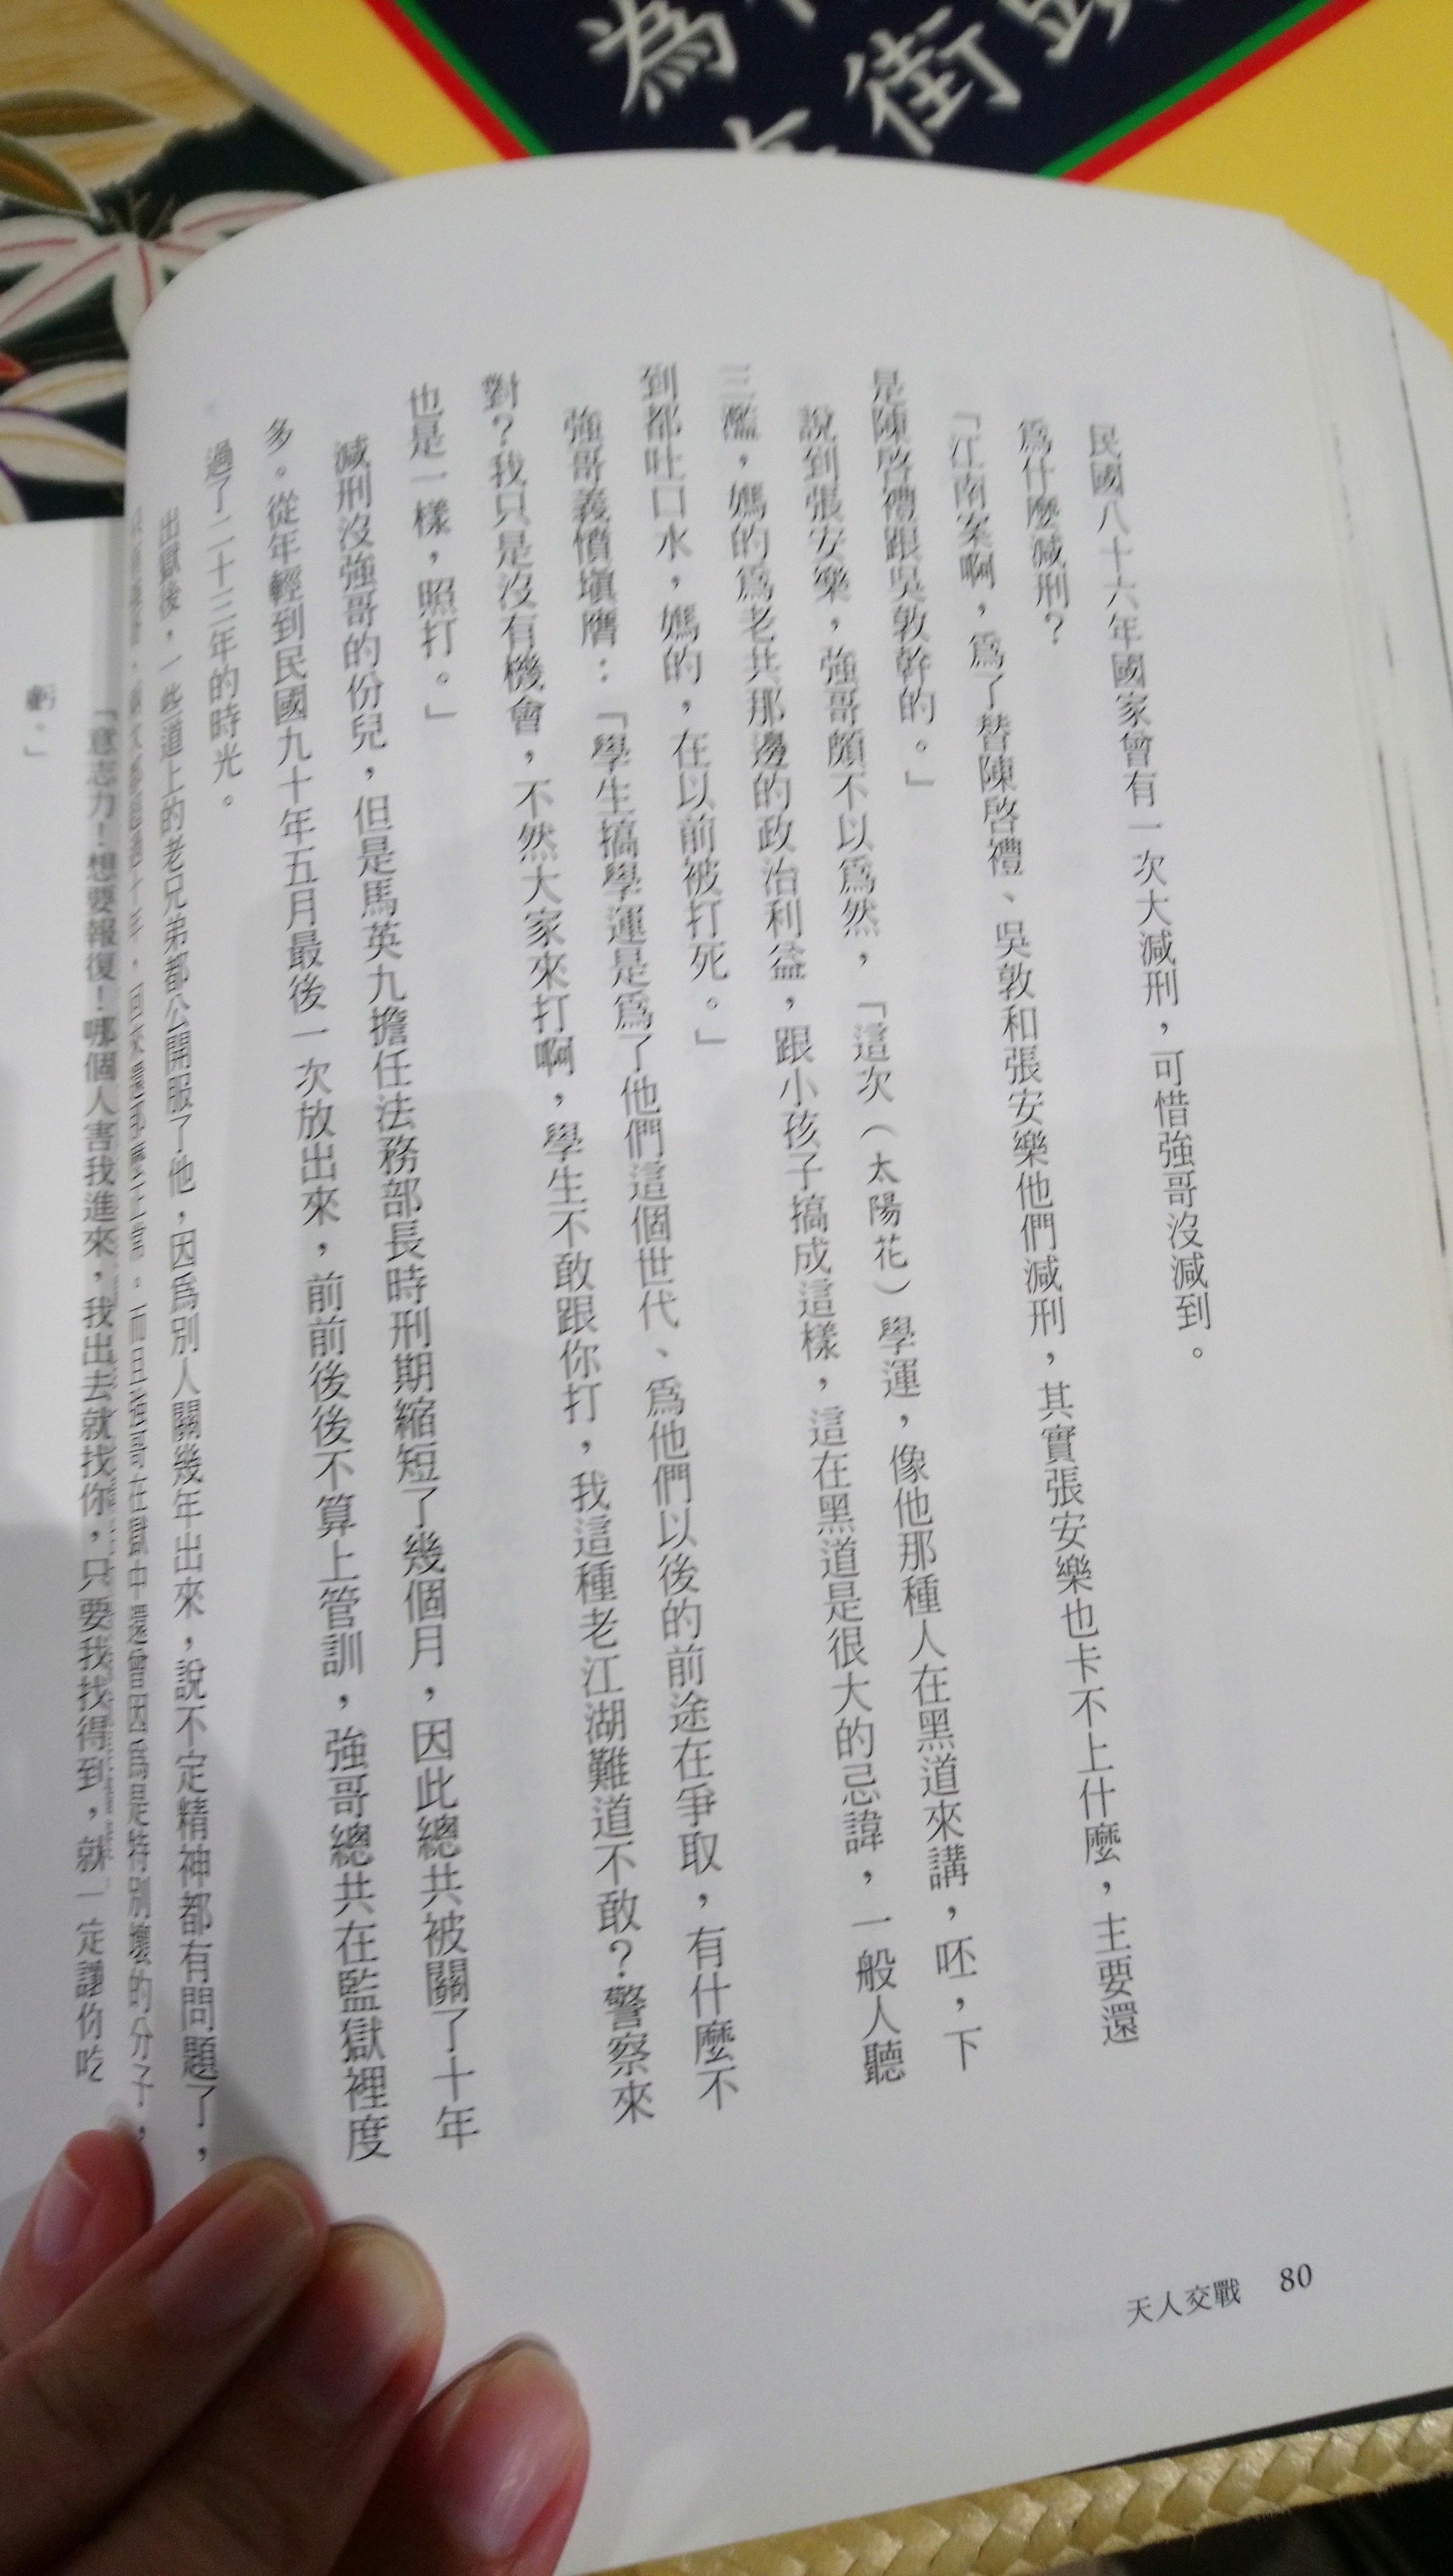 民國八十六年國家曾有一次大減刑，可惜強哥沒減到。
爲什麼減刑？
「江南案啊，爲了替陳啓禮、吳敦和張安樂他們減刑，其實張安樂也卡不上什麼，主要還
是陳啓禮跟吳敦幹的。」
說到張安樂，強哥頗不以爲然，「這次（太陽花）學運，像他那種人在黑道來講，呸，下
三濫，媽的爲老共那邊的政治利益，跟小孩子搞成這樣，這在黑道是很大的忌諱，一般人聽
到都吐口水，媽的，在以前被打死。」
強哥義憤填膺：「學生搞學運是爲了他們這個世代、爲他們以後的前途在爭取，有什麼不
對？我只是沒有機會，不然大家來打啊，學生不敢跟你打，我這種老江湖難道不敢？警察來
也是一樣，照打。」
減刑沒強哥的份兒，但是馬英九擔任法務部長時刑期縮短了幾個月，因此總共被關了十年
多。從年輕到民國九十年五月最後一次放出來，前前後後不算上管訓，強哥總共在監獄裡度
過了二十三年的時光。
出獄後，一些道上的老兄弟都公開服了他，因爲別人關幾年出來，說不定精神都有問題了，
獄中還曾因爲是特別壞的分子，
「意志力！想要報復！哪個人害我進來，我出去就找你，只要我找得到，就一定讓你吃
虧。」
天人交戰 80
為
街頭